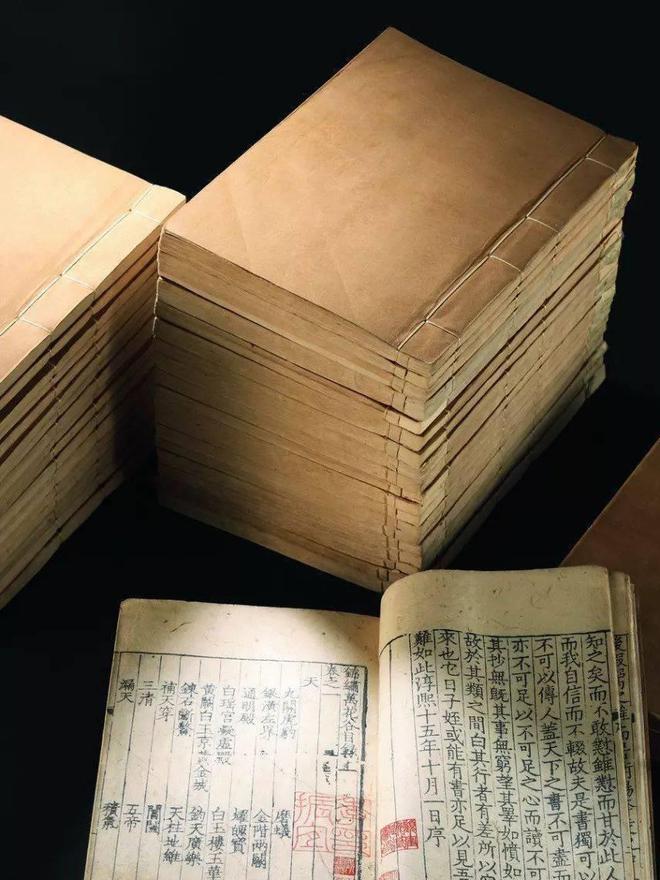 知之矣而不敢雖而甘於此人
而我自信而不輟故夫是書獨可以
不可以傳人蓋天下之書不可盡而
亦不可足以不可足之心而讀不可
其抄無旣其事無窮望其如憤如
故於其類之間白其行者有差所以
來也它日子姪或能有書亦足以見吾
難如此淳熙十五年十月一日序
錦繡萬花谷目錄
卷之一
天
九關虎豹 磨蟻
銀潢左界 金階兩
通明殿 寶
白瑤宮 白玉樓五華
白玉京黃金城 鈞天廣樂
鍊石 天柱地維
補天穿 閶闔
三清 五帝
漏天 積氣